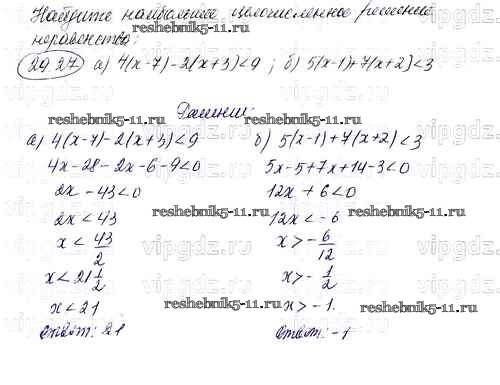 Найдите наибольшее целочисленное решение
неравенства:
reshebnik5-11.ru
29.27 а) 4(x-7)-2(x+3)<9 ; б) 5(x-1)+7(x+2)<3
vipgdz.ru vipgdz.ru vipgdz
reshebnik5-11.ru reshebnik5-11.ru
Решение:
reshebnik5-11.ru
а) 4(x-7)-2(x+3)<9 б) 5(x-1)+7(x+2)<3
4x-28-2x-6-9<0 5x-5+7x+14-3<0
2x-43<0 12x+6<0
reshebnik5-11.ru reshebnik5-11.ru
2x<43 12x<-6
x<43/2 x>-6/12
vipgdz.ru vipgdz.ru vipgdz
x<21 1/2 x>-1/2
x<21 x>-1
reshebnik5-11.ru reshebnik5-11.ru
Ответ: 21 Ответ: -1